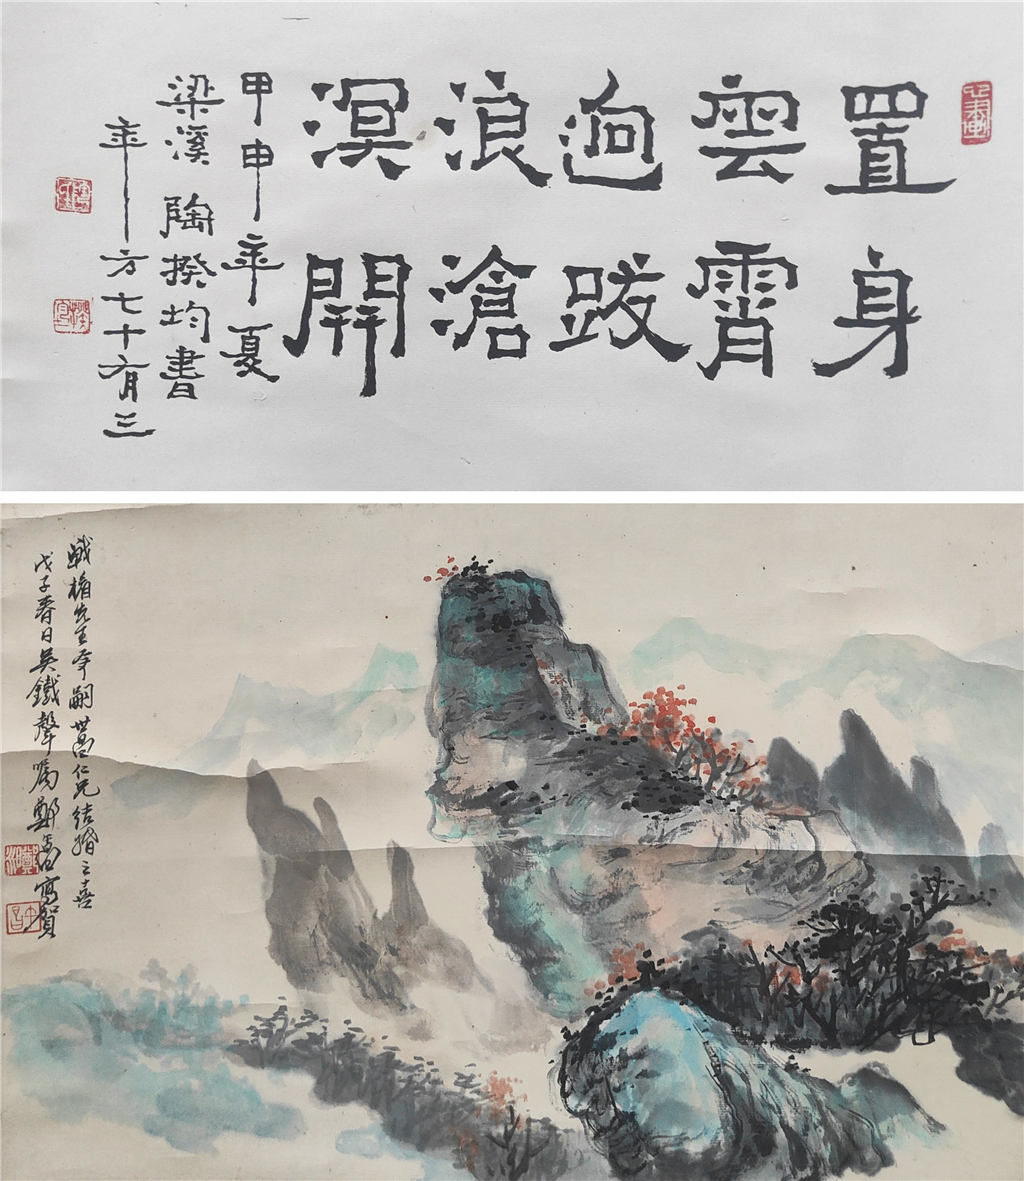 置身
雲霄
逈跋
浪滄
溟開
甲申年夏
梁溪 陶揆均書
年方七十有三
戟楣先生令嗣世昌仁兄結婚之喜
戊子春日吳鐵聲囑鄭午昌寫賀